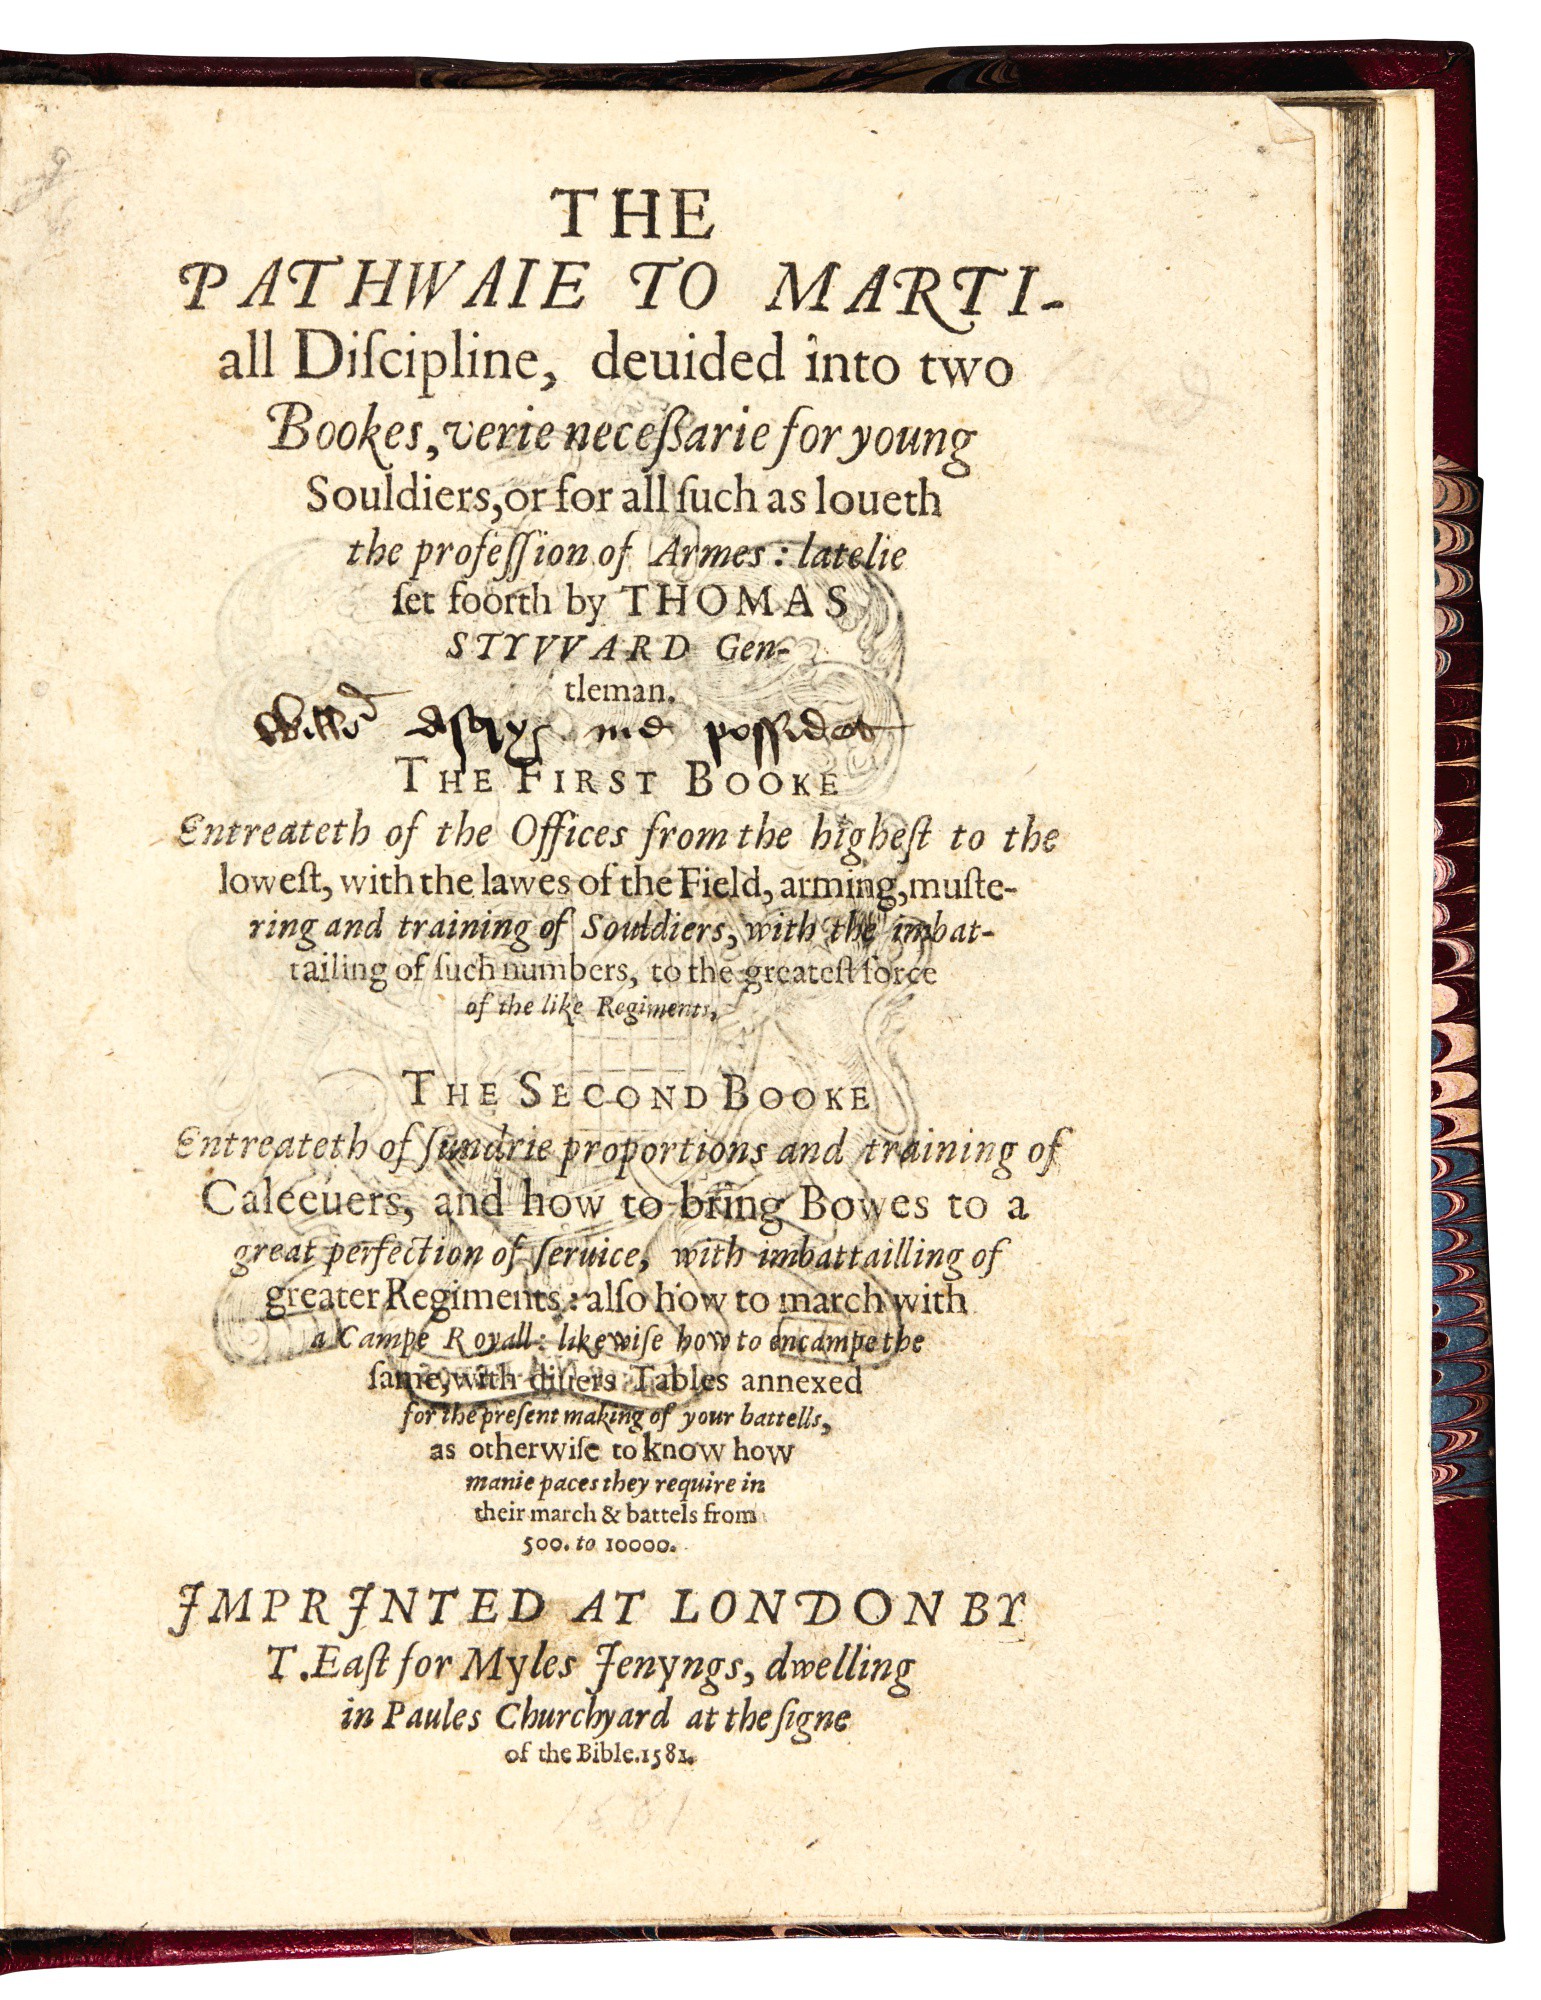 THE
PATHWAIE TO MARTI-
all Diſcipline, deuided into two
Bookes, verie neceſſarie for young
Souldiers, or for all ſuch as loueth
the profeſſion of Armes: latelie
ſet foorth by THOMAS
STYVVARD Gen-
tleman.
me possidet
THE FIRST BOOKE
Entreateth of the Offices from the higheſt to the
loweſt, with the lawes of the Field, arming, muſte-
ring and training of Souldiers, with the imbat-
tailing of ſuch numbers, to the greateſt force
of the like Regiments,
THE SECOND BOOKE
Entreateth of ſundrie proportions and training of
Caleeuers, and how to bring Bowes to a
great perfection of ſeruice, with imbattailling of
greater Regiments: alſo how to march with
a Campe Royall: likewiſe how to encampe the
ſame, with diuers Tables annexed
for the preſent making of your battells,
as otherwiſe to know how
manie paces they require in
their march & battels from
500. to 10000.
IMPRINTED AT LONDON BY
T. Eaſt for Myles Jenyngs, dwelling
in Paules Churchyard at the ſigne
of the Bible. 1581.
1581